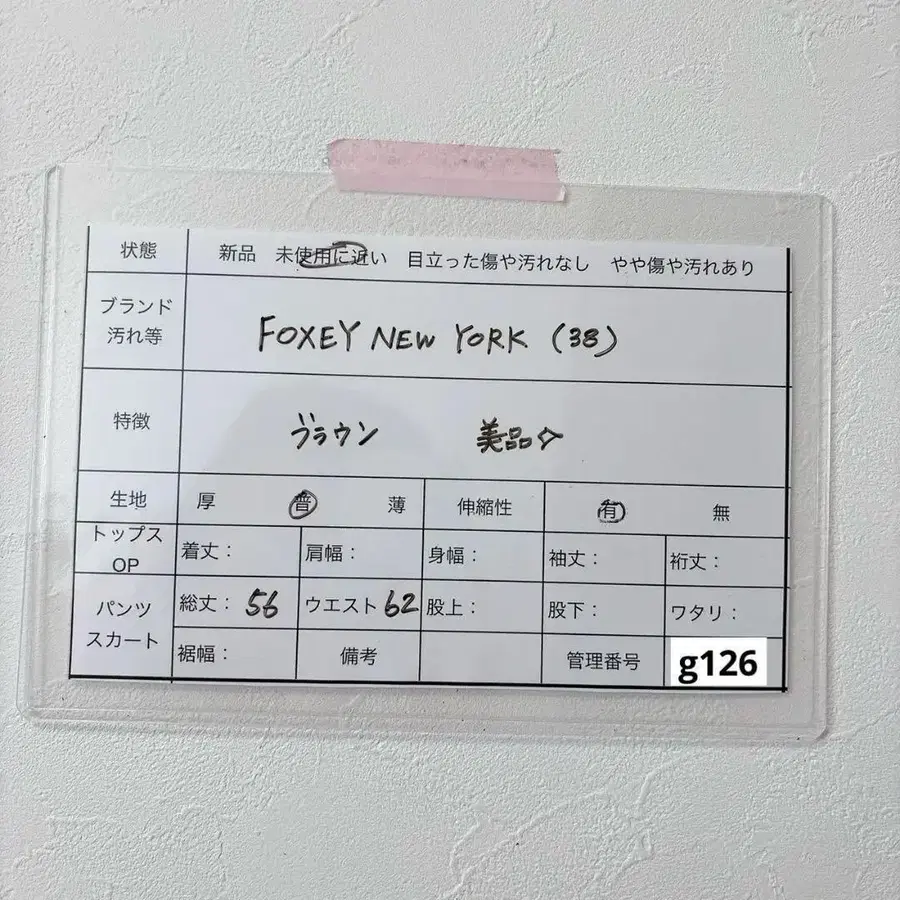 状態 新品 未使用に近い 目立った傷や汚れなし やや傷や汚れあり
ブランド
汚れ等
FOXEY NEW YORK (38)
特徴 ブラウン 美品☆
生地 厚 普 薄 伸縮性 有 無
トップス
OP
着丈： 肩幅： 身幅： 袖丈： 裄丈：
パンツ
スカート
総丈：56 ウエスト62 股上： 股下： ワタリ：
裾幅： 備考 管理番号 g126